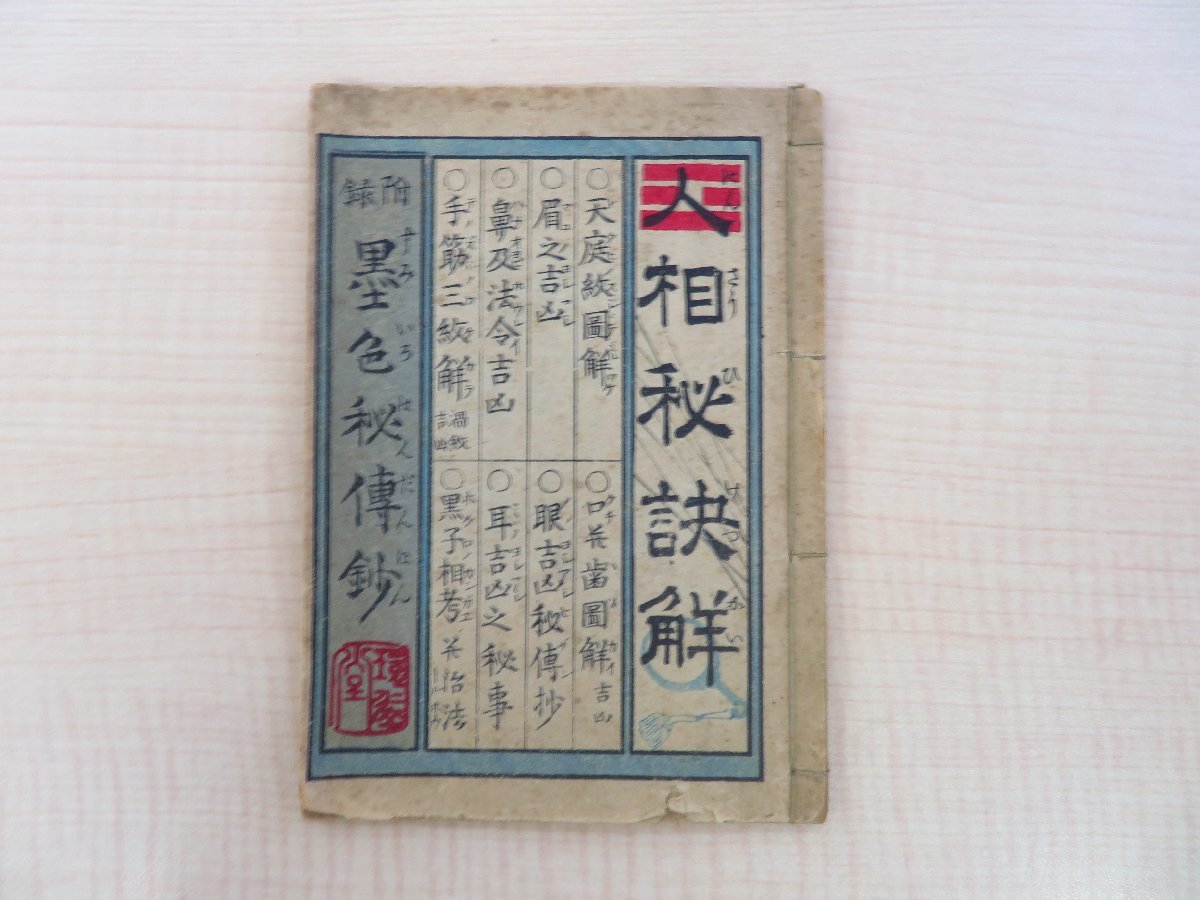 人相秘訣解
○天庭紋圖解
○口并歯圖解吉凶
○眉之吉凶
○眼吉凶秘傳抄
○鼻及法令吉凶
○耳吉凶之秘事
○手筋三紋解
○黒子相考并治法
附録
墨色秘傳鈔